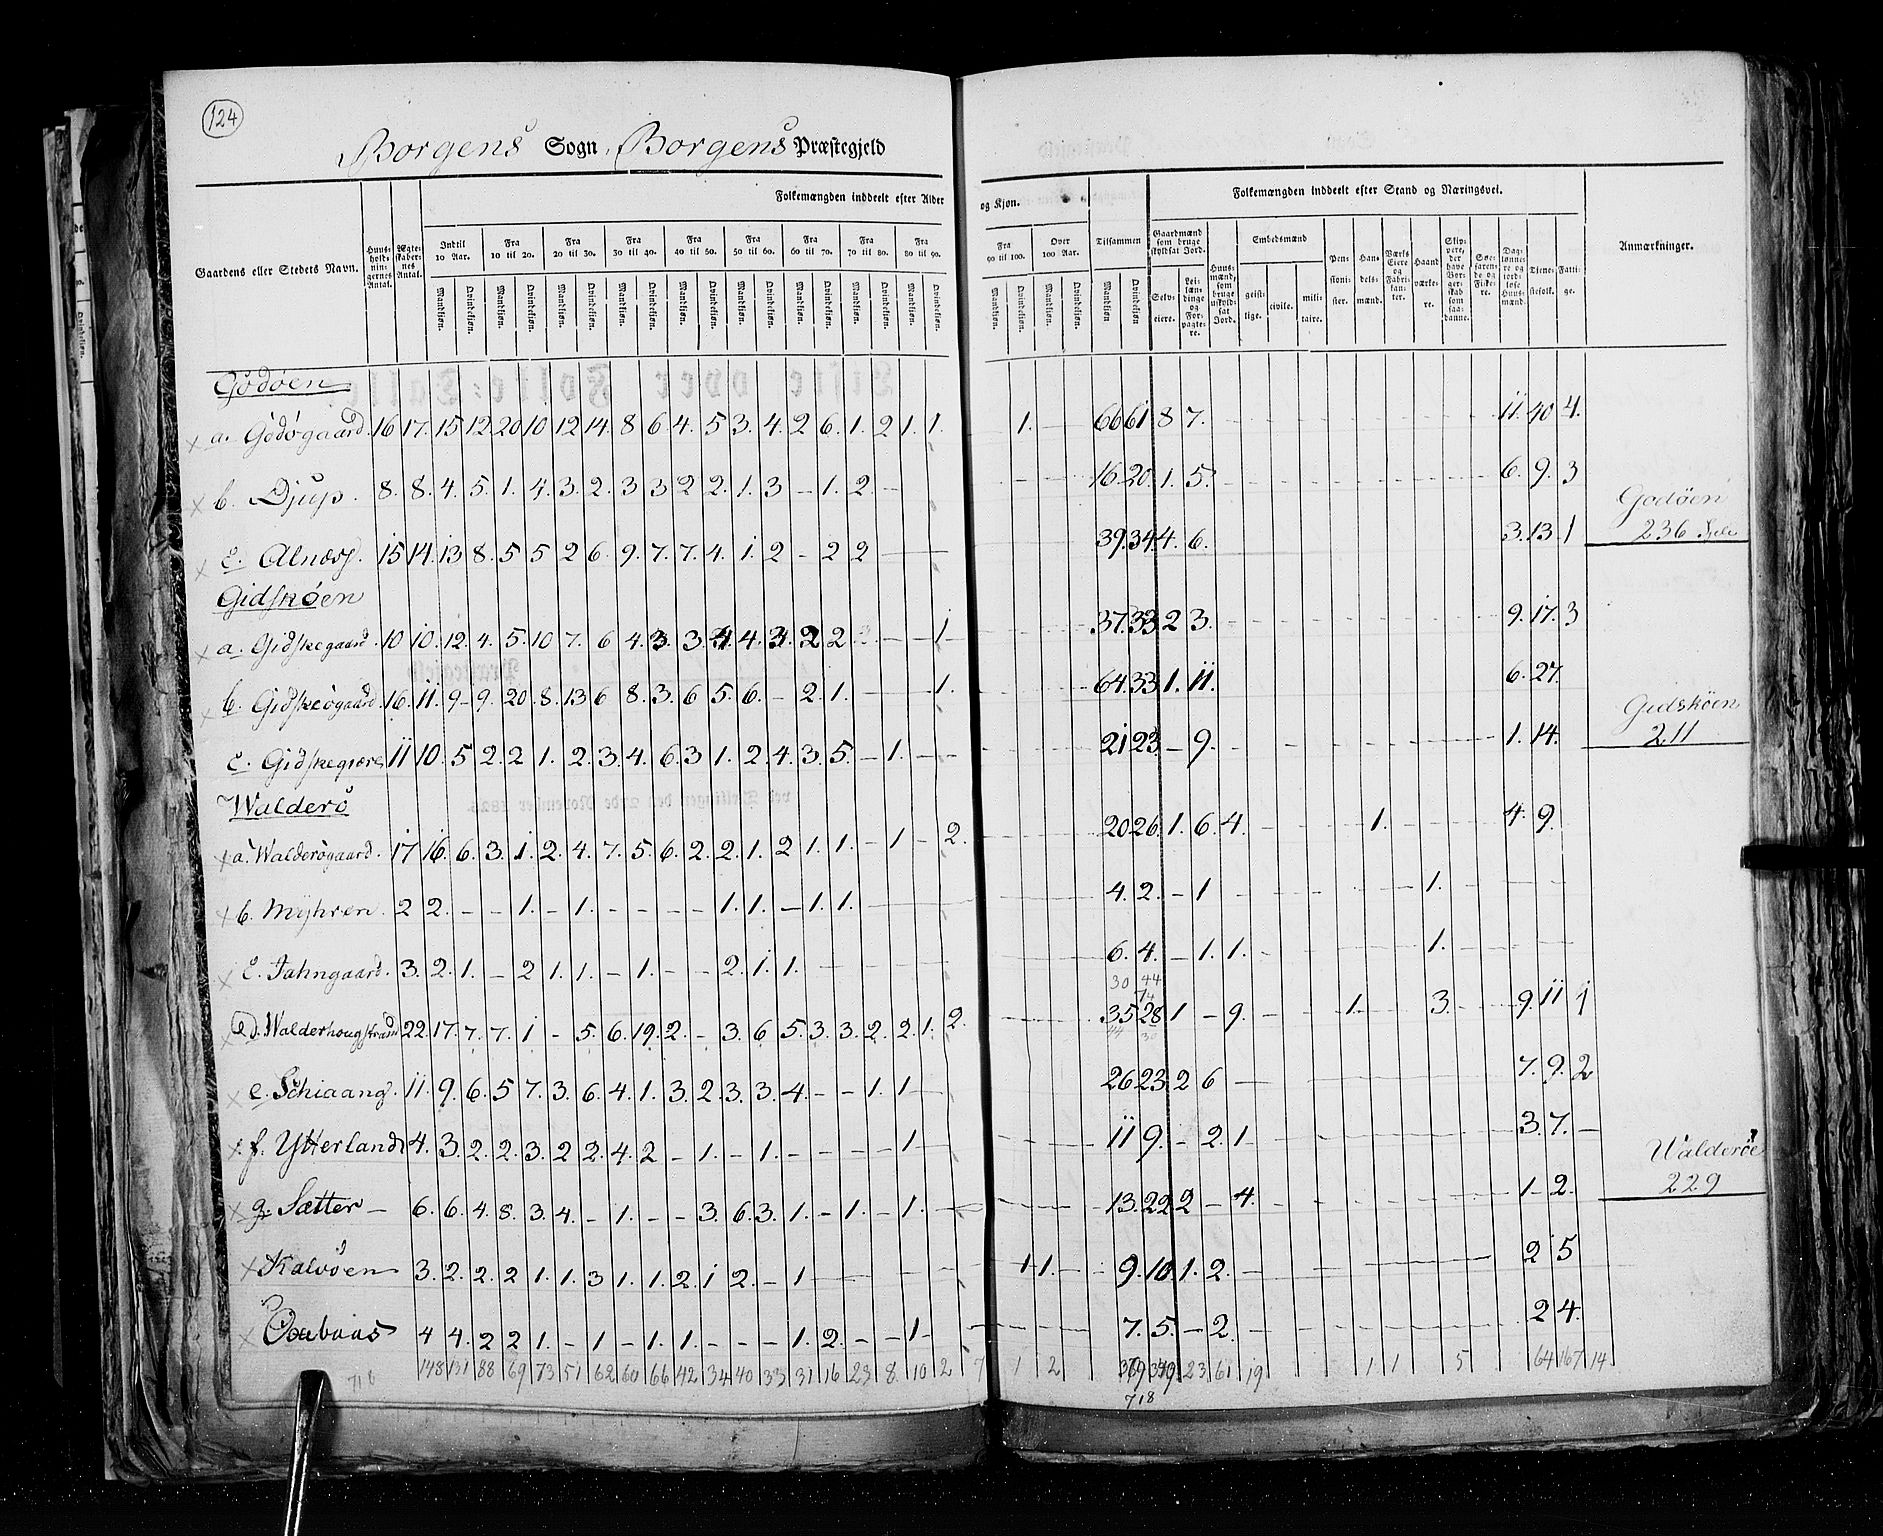 124
Borgens Sogn, Borgens Præstegjeld
Folkemængden inddeelt efter Alder og Kjøn.
Folkemængden inddeelt efter Stand og Næringsvei.
Gaardens eller Stedets Navn.
Huus-hold-nin-gernes Antal.
Ægte-skaber-nes Antal.
Indtil 10 Aar. Fra 10 til 20. Fra 20 til 30. Fra 30 til 40. Fra 40 til 50. Fra 50 til 60. Fra 60 til 70. Fra 70 til 80. Fra 80 til 90. Fra 90 til 100. Over 100 Aar. Tilsammen
Mandkjøn. Qvindekjøn.
Gaardmænd som bruge skyldsat Jord.
Selv-eiere. Lei-læn-dinge og For-pagte-re.
Huus-mænd, som bruge uskyld-sat Jord.
Embedsmænd
geist-lige. civile. mili-taire.
Pen-sioni-ster. Han-dels-mænd. Værks Eiere og Fabri-kan-ter. Haand værke-re. Skip-pere, der have Bor-ger-skab som saa-danne. Søe-farende og Fiske-re. Dag-lønne-re og jord-løse Huus-mænd. Tjene-stefolk. Fatti-ge.
Anmærkninger.
Godøen
a. Godøgaard. 16 17. 15 12 20 10 12 14. 8 6 4. 5 3. 4. 2 6. 1. 2 1. 1. 1. 66 61 8 7. 11. 40 4.
b. Djup. 8. 8. 4. 5. 1. 4. 3. 2. 3 3 2 2. 1. 3 – 1. 2. – 16 20. 1. 5. 6. 9. 3
c. Alnæs. 15 14. 13 8. 5 5 2 6. 9. 7. 7. 4. 1. 2 – 2 2 39. 34. 4. 6. 3. 13. 1
Godøen
236
Gidskøen
a. Gidskegaard 10 10. 12. 4. 5. 10 7. 6 4. 3. 3. 4. 4. 3. 2 2. 1 37. 33 2 3. 9. 17. 3
b. Gidskeøgaard. 16. 11. 9. 9. 20. 8. 13 6 8. 3. 6 5. 6. – 2. 1. – 1. 64. 33 1. 11. 6. 27.
c. Gidskegiære 11 10. 5 2. 2 1. 2. 3. 4. 6. 3 1. 2. 4. 3. 5. – 1. – 21 23 – 9. 1. 14.
Gidskøen
211
Walderø
a. Walderøgaard. 17 16. 6. 3. 1. 2. 4. 7. 5. 6. 2. 2. 1. 2 1. 1. – 1 – 2. 20 26. 1. 6. 4. 1. 4. 9.
b. Myhren. 2 2. – – 1. – 1. – – – – 1. 1. – 1. 1. 4. 2. – 1 1.
c. Jahngaard. 3. 2. 1. – 2 1. 1. – 1. – – 2. 1. 1. 6. 4. – 1. 1. 1.
30 44
74
d. Walderhougstrand 22. 17. 7. 7. 1 – 5. 6. 19. 2. – 3. 6 5. 3. 3. 2. 2. 1. 2. 35 28 1 – 9. 1. 3. 9. 11 1
e. Schiaang. 11. 9. 6. 5 7. 3. 6. 4. 1. 3. 2. 3. 3. 4. – – 1. 1. 26 23. 2 6 7. 9. 2
f. Ytterland 4. 3. 2. 2. 3. 2 2. 4. 2 – 1. – 1. – – – – 1. 11 9. – 2. 1 3. 7. –
g. Sætter – 6. 6. 4. 8. 3. 4. – 1. – – 3. 6. 3. 1. – 1. – 1. 13. 22 2 – 4. 1 – 2.
Walderøe
229
Kalvøen 3. 2. 2. 2 1. 1. 3 1. 1. 2. 1 2. – 1 1 1. 9. 10 1. 2. 2 5
4 4. 2 2 1. – 1 – 1. 1. – – – 1. 2. – – 1 7. 5. – 2. 2 4.
718 148 131 88 69 73 51 62 60 66 42 34 40 33 31 16 23 8. 10 2 7 1 2 369 349 23 61 19 1 1 5 64 167 14
718